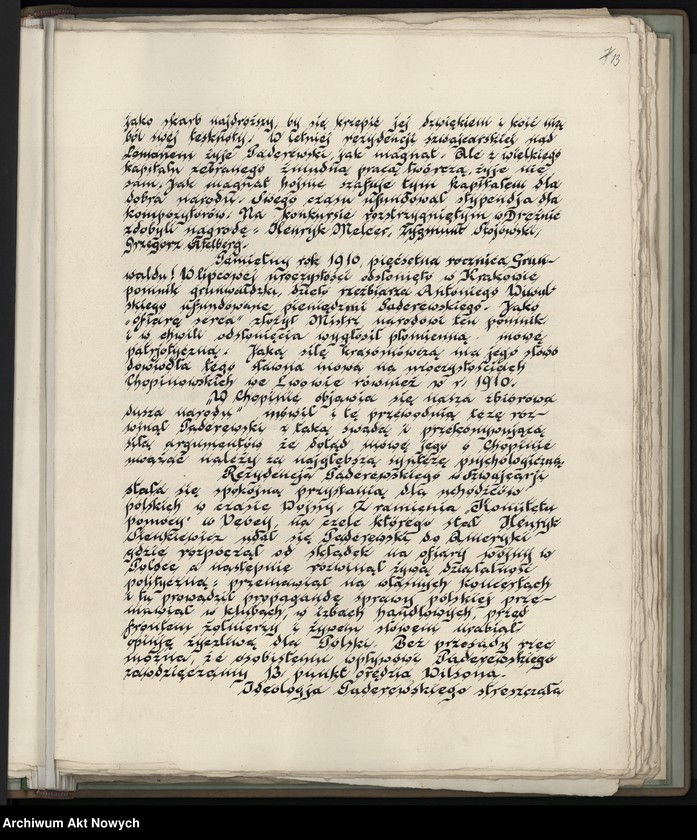 13
jako skarb najdroższy, by się krzepić jej dźwiękiem i koić nią
ból swej tęsknoty. W letniej rezydencji szwajcarskiej nad
Lemanem żyje Paderewski, jak magnat. Ale z wielkiego
kapitału zebranego żmudną pracą twórczą, żyje nie
sam. Jak magnat hojnie szafuje tym kapitałem dla
dobra narodu. Swego czasu ufundował stypendja dla
kompozytorów. Na konkursie rozstrzygniętym w Dreźnie
zdobyli nagrodę: Henryk Melcer, Zygmunt Stojowski,
Grzegorz Fitelberg.
Pamiętny rok 1910, pięćsetna rocznica Grun-
waldu! W lipcowej uroczystości odsłonięto w Krakowie
pomnik grunwaldzki, dzieło rzeźbiarza Antoniego Wiwul-
skiego ufundowane pieniędzmi Paderewskiego. Jako
„ofiarę serca" złożył Mistrz narodowi ten pomnik
i w chwili odsłonięcia wygłosił płomienną mowę
patrjotyczną. Jaką siłę krasomówczą ma jego słowo
dowiodła tego sławna mowa na uroczystościach
Chopinowskich we Lwowie również w r. 1910.
„W Chopinie objawia się nasza zbiorowa
dusza narodu" mówił i tę przewodnią tezę roz-
winął Paderewski z taką swadą i przekonywującą
siłą argumentów że dotąd mowę jego o Chopinie
uważać należy za najgłębszą syntezę psychologiczną
Rezydencja Paderewskiego w Szwajcarji
stała się spokojną przystanią dla uchodźców
polskich w czasie Wojny. Z ramienia „Komitetu
pomocy" w Vevey, na czele którego stał Henryk
Sienkiewicz udał się Paderewski do Ameryki
gdzie rozpoczął od składek na ofiary wojny w
Polsce a następnie rozwinął żywą działalność
polityczną: przemawiał na własnych koncertach
i tu prowadził propagandę sprawy polskiej prze-
mawiał w klubach, w izbach handlowych, przed
frontem żołnierzy i żywem słowem urabiał
opinję życzliwą dla Polski. Bez przesady rzec
można, że osobistemu wpływowi Paderewskiego
zawdzięczamy 13 punkt orędzia Wilsona.
Ideologja Paderewskiego streszczała
Archiwum Akt Nowych